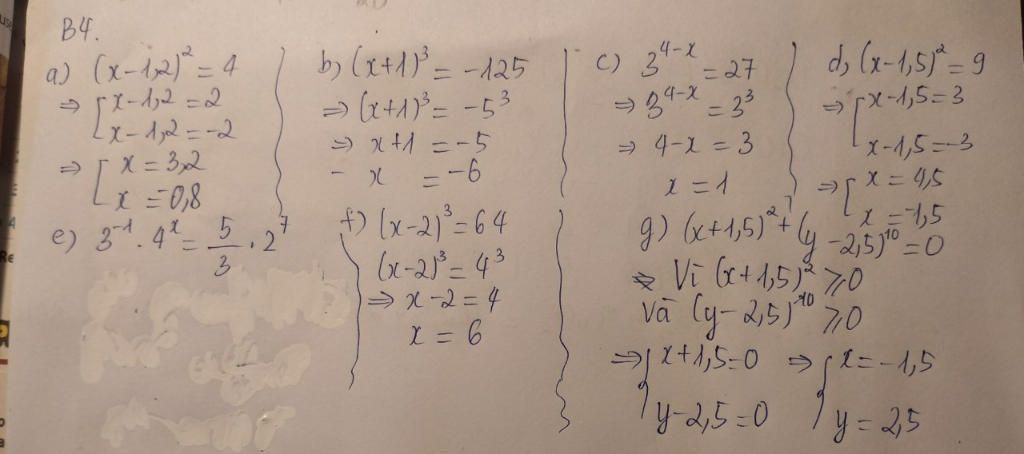 B4.
a) (x-1,2)² = 4
⇒ [ x-1,2 = 2
x-1,2 = -2
⇒ [ x = 3,2
x = -0,8
b, (x+1)³ = -125
⇒ (x+1)³ = -5³
⇒ x+1 = -5
- x = -6
c) 3^{4-x} = 27
⇒ 3^{4-x} = 3³
⇒ 4-x = 3
x = 1
d, (x-1,5)² = 9
⇒ [ x-1,5 = 3
x-1,5 = -3
⇒ [ x = 4,5
x = -1,5
e) 3⁻¹ . 4ˣ = 5/3 . 2⁷
f) (x-2)³ = 64
(x-2)³ = 4³
⇒ x-2 = 4
x = 6
g) (x+1,5)² + (y-2,5)¹⁰ = 0
Vì (x+1,5)² ⩾ 0
và (y-2,5)¹⁰ ⩾ 0
⇒ { x+1,5 = 0
y-2,5 = 0
⇒ { x = -1,5
y = 2,5